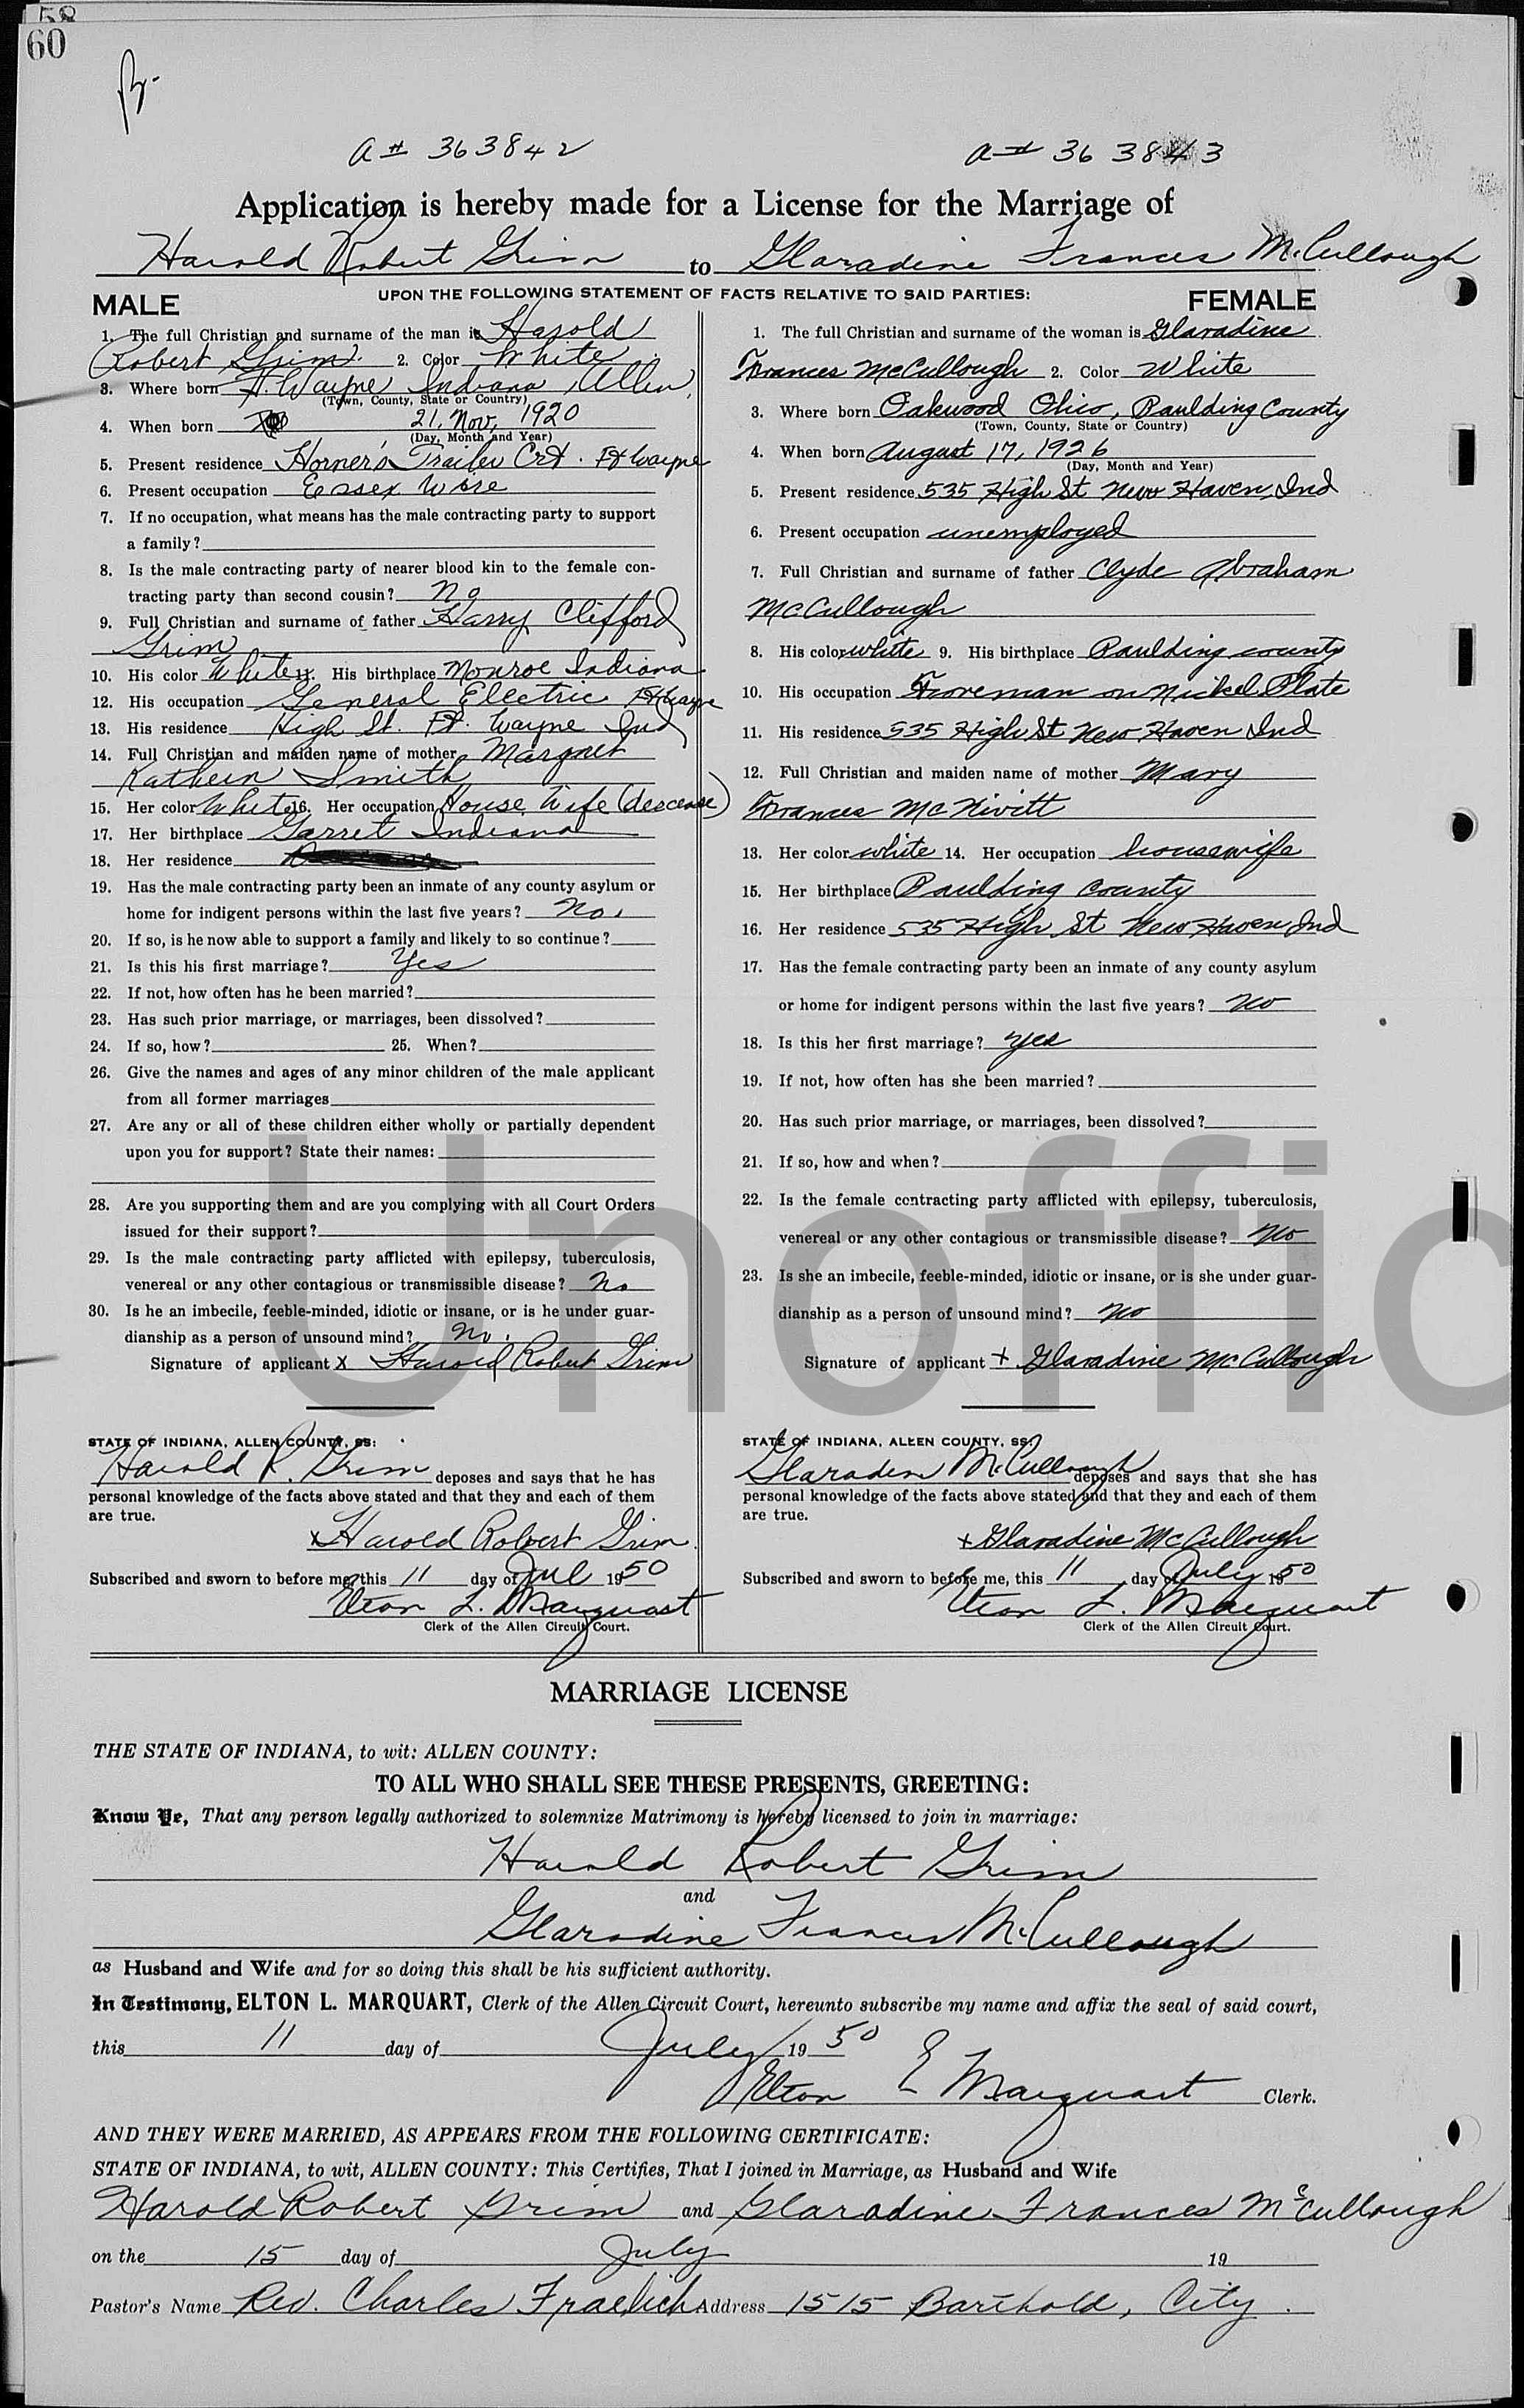 58
60
A# 363842
A# 363843
Application is hereby made for a License for the Marriage of
Harold Robert Grim to Glaradine Frances McCullough
UPON THE FOLLOWING STATEMENT OF FACTS RELATIVE TO SAID PARTIES:
MALE
1. The full Christian and surname of the man is Harold
Robert Grim 2. Color White
3. Where born Ft. Wayne Indiana, Allen
(Town, County, State or Country)
4. When born 21, Nov, 1920
(Day, Month and Year)
5. Present residence Horner's Trailer Crt. Ft Wayne
6. Present occupation Essex Wire
7. If no occupation, what means has the male contracting party to support
a family?
8. Is the male contracting party of nearer blood kin to the female con-
tracting party than second cousin? No
9. Full Christian and surname of father Harry Clifford
Grim
10. His color White 11. His birthplace Monroe Indiana
12. His occupation General Electric Ft Wayne
13. His residence High St. Ft. Wayne Ind
14. Full Christian and maiden name of mother Margret
Kathern Smith
15. Her color White 16. Her occupation House Wife (descease)
17. Her birthplace Garret Indiana
18. Her residence
19. Has the male contracting party been an inmate of any county asylum or
home for indigent persons within the last five years? No.
20. If so, is he now able to support a family and likely to so continue?
21. Is this his first marriage? Yes
22. If not, how often has he been married?
23. Has such prior marriage, or marriages, been dissolved?
24. If so, how? 25. When?
26. Give the names and ages of any minor children of the male applicant
from all former marriages
27. Are any or all of these children either wholly or partially dependent
upon you for support? State their names:
28. Are you supporting them and are you complying with all Court Orders
issued for their support?
29. Is the male contracting party afflicted with epilepsy, tuberculosis,
venereal or any other contagious or transmissible disease? No
30. Is he an imbecile, feeble-minded, idiotic or insane, or is he under guar-
dianship as a person of unsound mind? No.
Signature of applicant X Harold Robert Grim
STATE OF INDIANA, ALLEN COUNTY, SS:
Harold R. Grim deposes and says that he has
personal knowledge of the facts above stated and that they and each of them
are true.
x Harold Robert Grim
Subscribed and sworn to before me, this 11 day of Jul 1950
Elton L. Marquart
Clerk of the Allen Circuit Court.
FEMALE
1. The full Christian and surname of the woman is Glaradine
Frances McCullough 2. Color White
3. Where born Oakwood Ohio, Paulding County
(Town, County, State or Country)
4. When born August 17, 1926
(Day, Month and Year)
5. Present residence 535 High St New Haven, Ind
6. Present occupation unemployed
7. Full Christian and surname of father Clyde Abraham
McCullough
8. His color white 9. His birthplace Paulding county
10. His occupation Foreman on Nickel Plate
11. His residence 535 High St New Haven Ind
12. Full Christian and maiden name of mother Mary
Frances McNivitt
13. Her color white 14. Her occupation housewife
15. Her birthplace Paulding County
16. Her residence 535 High St New Haven Ind
17. Has the female contracting party been an inmate of any county asylum
or home for indigent persons within the last five years? no
18. Is this her first marriage? yes
19. If not, how often has she been married?
20. Has such prior marriage, or marriages, been dissolved?
21. If so, how and when?
22. Is the female contracting party afflicted with epilepsy, tuberculosis,
venereal or any other contagious or transmissible disease? no
23. Is she an imbecile, feeble-minded, idiotic or insane, or is she under guar-
dianship as a person of unsound mind? no
Signature of applicant + Glaradine McCullough
STATE OF INDIANA, ALLEN COUNTY, SS:
Glaradine McCullough deposes and says that she has
personal knowledge of the facts above stated and that they and each of them
are true.
+ Glaradine McCullough
Subscribed and sworn to before me, this 11 day of July 1950
Elton L. Marquart
Clerk of the Allen Circuit Court.
Unoffic
MARRIAGE LICENSE
THE STATE OF INDIANA, to wit: ALLEN COUNTY:
TO ALL WHO SHALL SEE THESE PRESENTS, GREETING:
Know Ye, That any person legally authorized to solemnize Matrimony is hereby licensed to join in marriage:
Harold Robert Grim
and
Glaradine Frances McCullough
as Husband and Wife and for so doing this shall be his sufficient authority.
In Testimony, ELTON L. MARQUART, Clerk of the Allen Circuit Court, hereunto subscribe my name and affix the seal of said court,
this 11 day of July 1950
Elton L Marquart Clerk.
AND THEY WERE MARRIED, AS APPEARS FROM THE FOLLOWING CERTIFICATE:
STATE OF INDIANA, to wit, ALLEN COUNTY: This Certifies, That I joined in Marriage, as Husband and Wife
Harold Robert Grim and Glaradine Frances McCullough
on the 15 day of July 19
Pastor's Name Rev. Charles Fraelich Address 1515 Barthold, City.